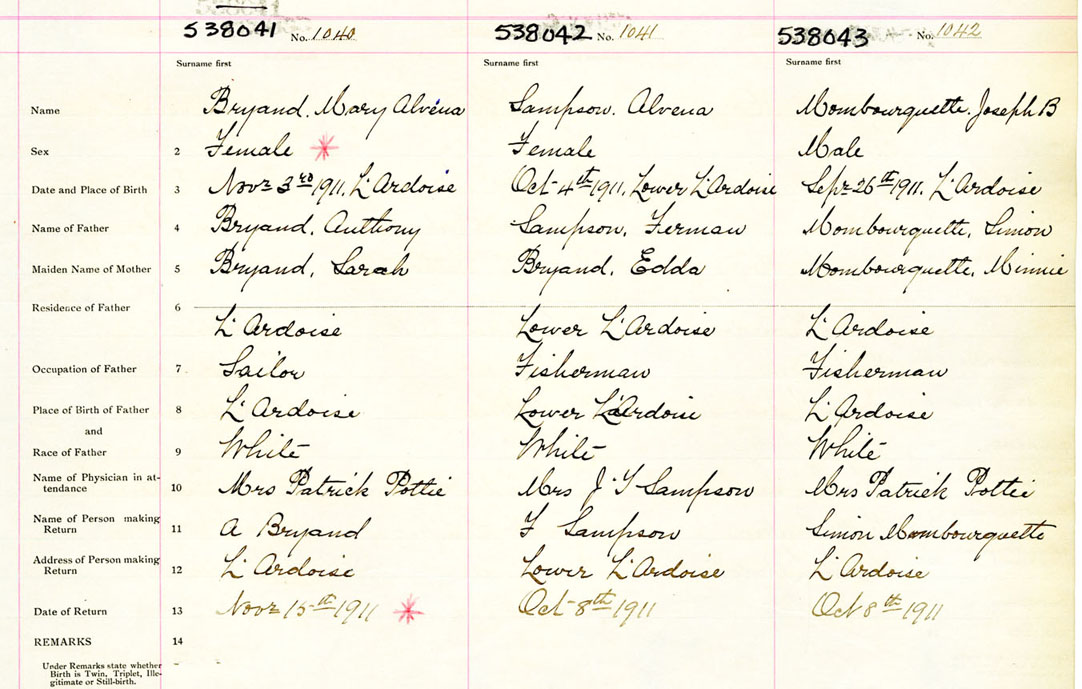 538041 No. 1040 538042 No. 1041 538043 No. 1042
Surname first Surname first Surname first
Name Bryand, Mary Alvena Sampson, Alvena Mombourquette, Joseph B
Sex 2 Female Female Male
Date and Place of Birth 3 Novr 3rd 1911, L'Ardoise Oct 4th 1911, Lower L'Ardoise Sepr 26th 1911, L'Ardoise
Name of Father 4 Bryand, Anthony Sampson, Ferman Mombourquette, Simon
Maiden Name of Mother 5 Bryand, Sarah Bryand, Edda Mombourquette, Minnie
Residence of Father 6
L'Ardoise Lower L'Ardoise L'Ardoise
Occupation of Father 7 Sailor Fisherman Fisherman
Place of Birth of Father 8 L'Ardoise Lower L'Ardoise L'Ardoise
and
Race of Father 9 White White White
Name of Physician in at-
tendance 10 Mrs Patrick Pottie Mrs J Y Sampson Mrs Patrick Pottie
Name of Person making
Return 11 A Bryand F Sampson Simon Mombourquette
Address of Person making
Return 12 L'Ardoise Lower L'Ardoise L'Ardoise
Date of Return 13 Novr 15th 1911 Oct 8th 1911 Oct 8th 1911
REMARKS 14
Under Remarks state whether
Birth is Twin, Triplet, Ille-
gitimate or Still-birth.